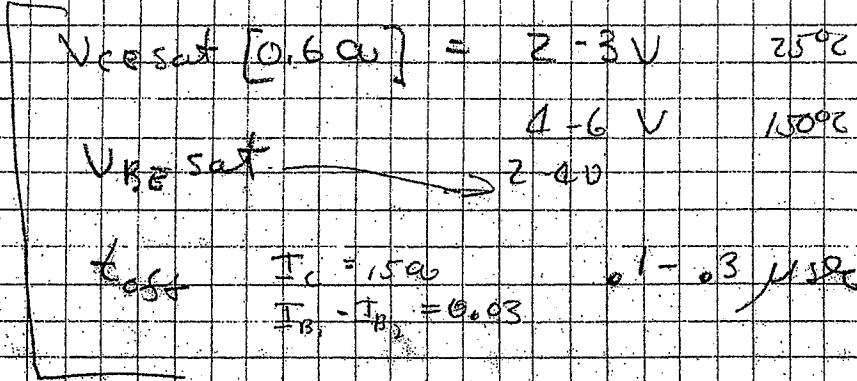 VCE sat [0.6 a] = 2-3 V 25°C
4-6 V 150°C
VBE sat → 2-4V
toff IC = .15a .1 - .3 μsec
IB1 - IB2 = 0.03